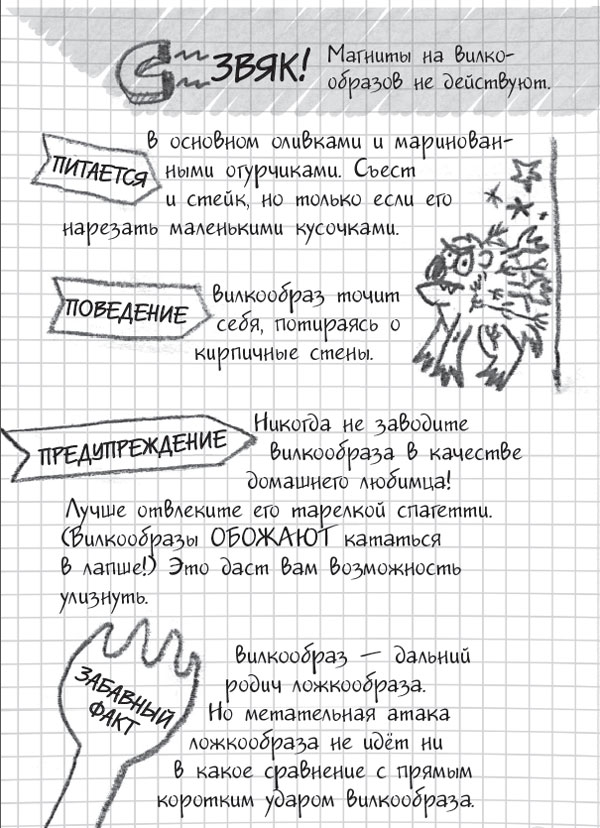 ЗВЯК!
Магниты на вилко-
образов не действуют.
ПИТАЕТСЯ
в основном оливками и маринован-
ными огурчиками. Съест
и стейк, но только если его
нарезать маленькими кусочками.
ПОВЕДЕНИЕ
Вилкообраз точит
себя, потираясь о
кирпичные стены.
ПРЕДУПРЕЖДЕНИЕ
Никогда не заводите
вилкообраза в качестве
домашнего любимца!
Лучше отвлеките его тарелкой спагетти.
(Вилкообразы ОБОЖАЮТ кататься
в лапше!) Это даст вам возможность
улизнуть.
ЗАБАВНЫЙ
ФАКТ
Вилкообраз — дальний
родич ложкообраза.
Но метательная атака
ложкообраза не идёт ни
в какое сравнение с прямым
коротким ударом вилкообраза.